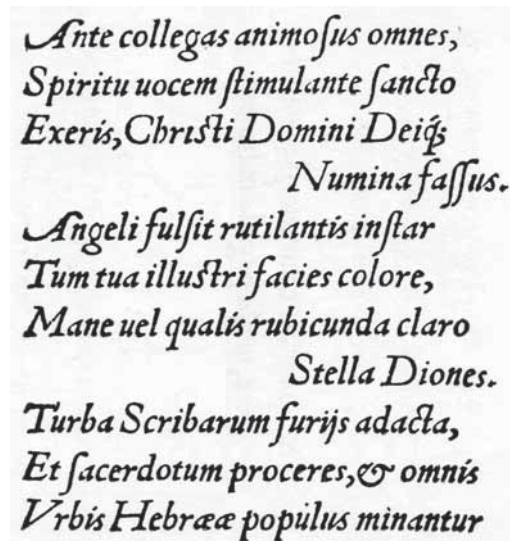 Ante collegas animoſus omnes,
Spiritu uocem ſtimulante ſancto
Exeris, Christi Domini Deiq́;
Numina faſſus.
Angeli fulſit rutilantis inſtar
Tum tua illustri facies colore,
Mane uel qualis rubicunda claro
Stella Diones.
Turba Scribarum furijs adacta,
Et ſacerdotum proceres, & omnis
Vrbis Hebrææ populus minantur